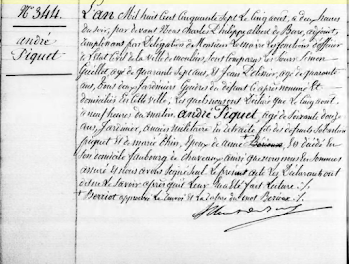 N° 344.
andré
Piquet
L'an Mil huit Cent Cinquante Sept Le Cinq août, à deux heures
du soir, par devant Nous Charles Philippe Albert de Bar, adjoint,
remplissant par Délégation de Monsieur Le Maire les fonctions d'officier
de l'Etat Civil de la ville de moulins, Sont Comparus les Sieurs Simon
Guillot, agé de quarante Sept ans, et Jean, agé de quarante
ans, tous deux Jardiniers Gendres du défunt ci après nommé et
domiciliés en Cette ville, Les quels nous ont Déclaré que Le Cinq août
à neuf heures du matin, andré Piquet, agé de Soixante douze
ans, Jardinier, ancien militaire en retraite fils des défunts Sébastien
piquet et de marie, Epoux de Est décédé en
son domicile faubourg de ainsi que nous nous en Sommes
assuré et Nous avons Signé Seul Le présent acte Les Déclarants ont
déclaré ne Savoir après que Leur en a été fait Lecture
approuvé Le renvoi et La rature du mot